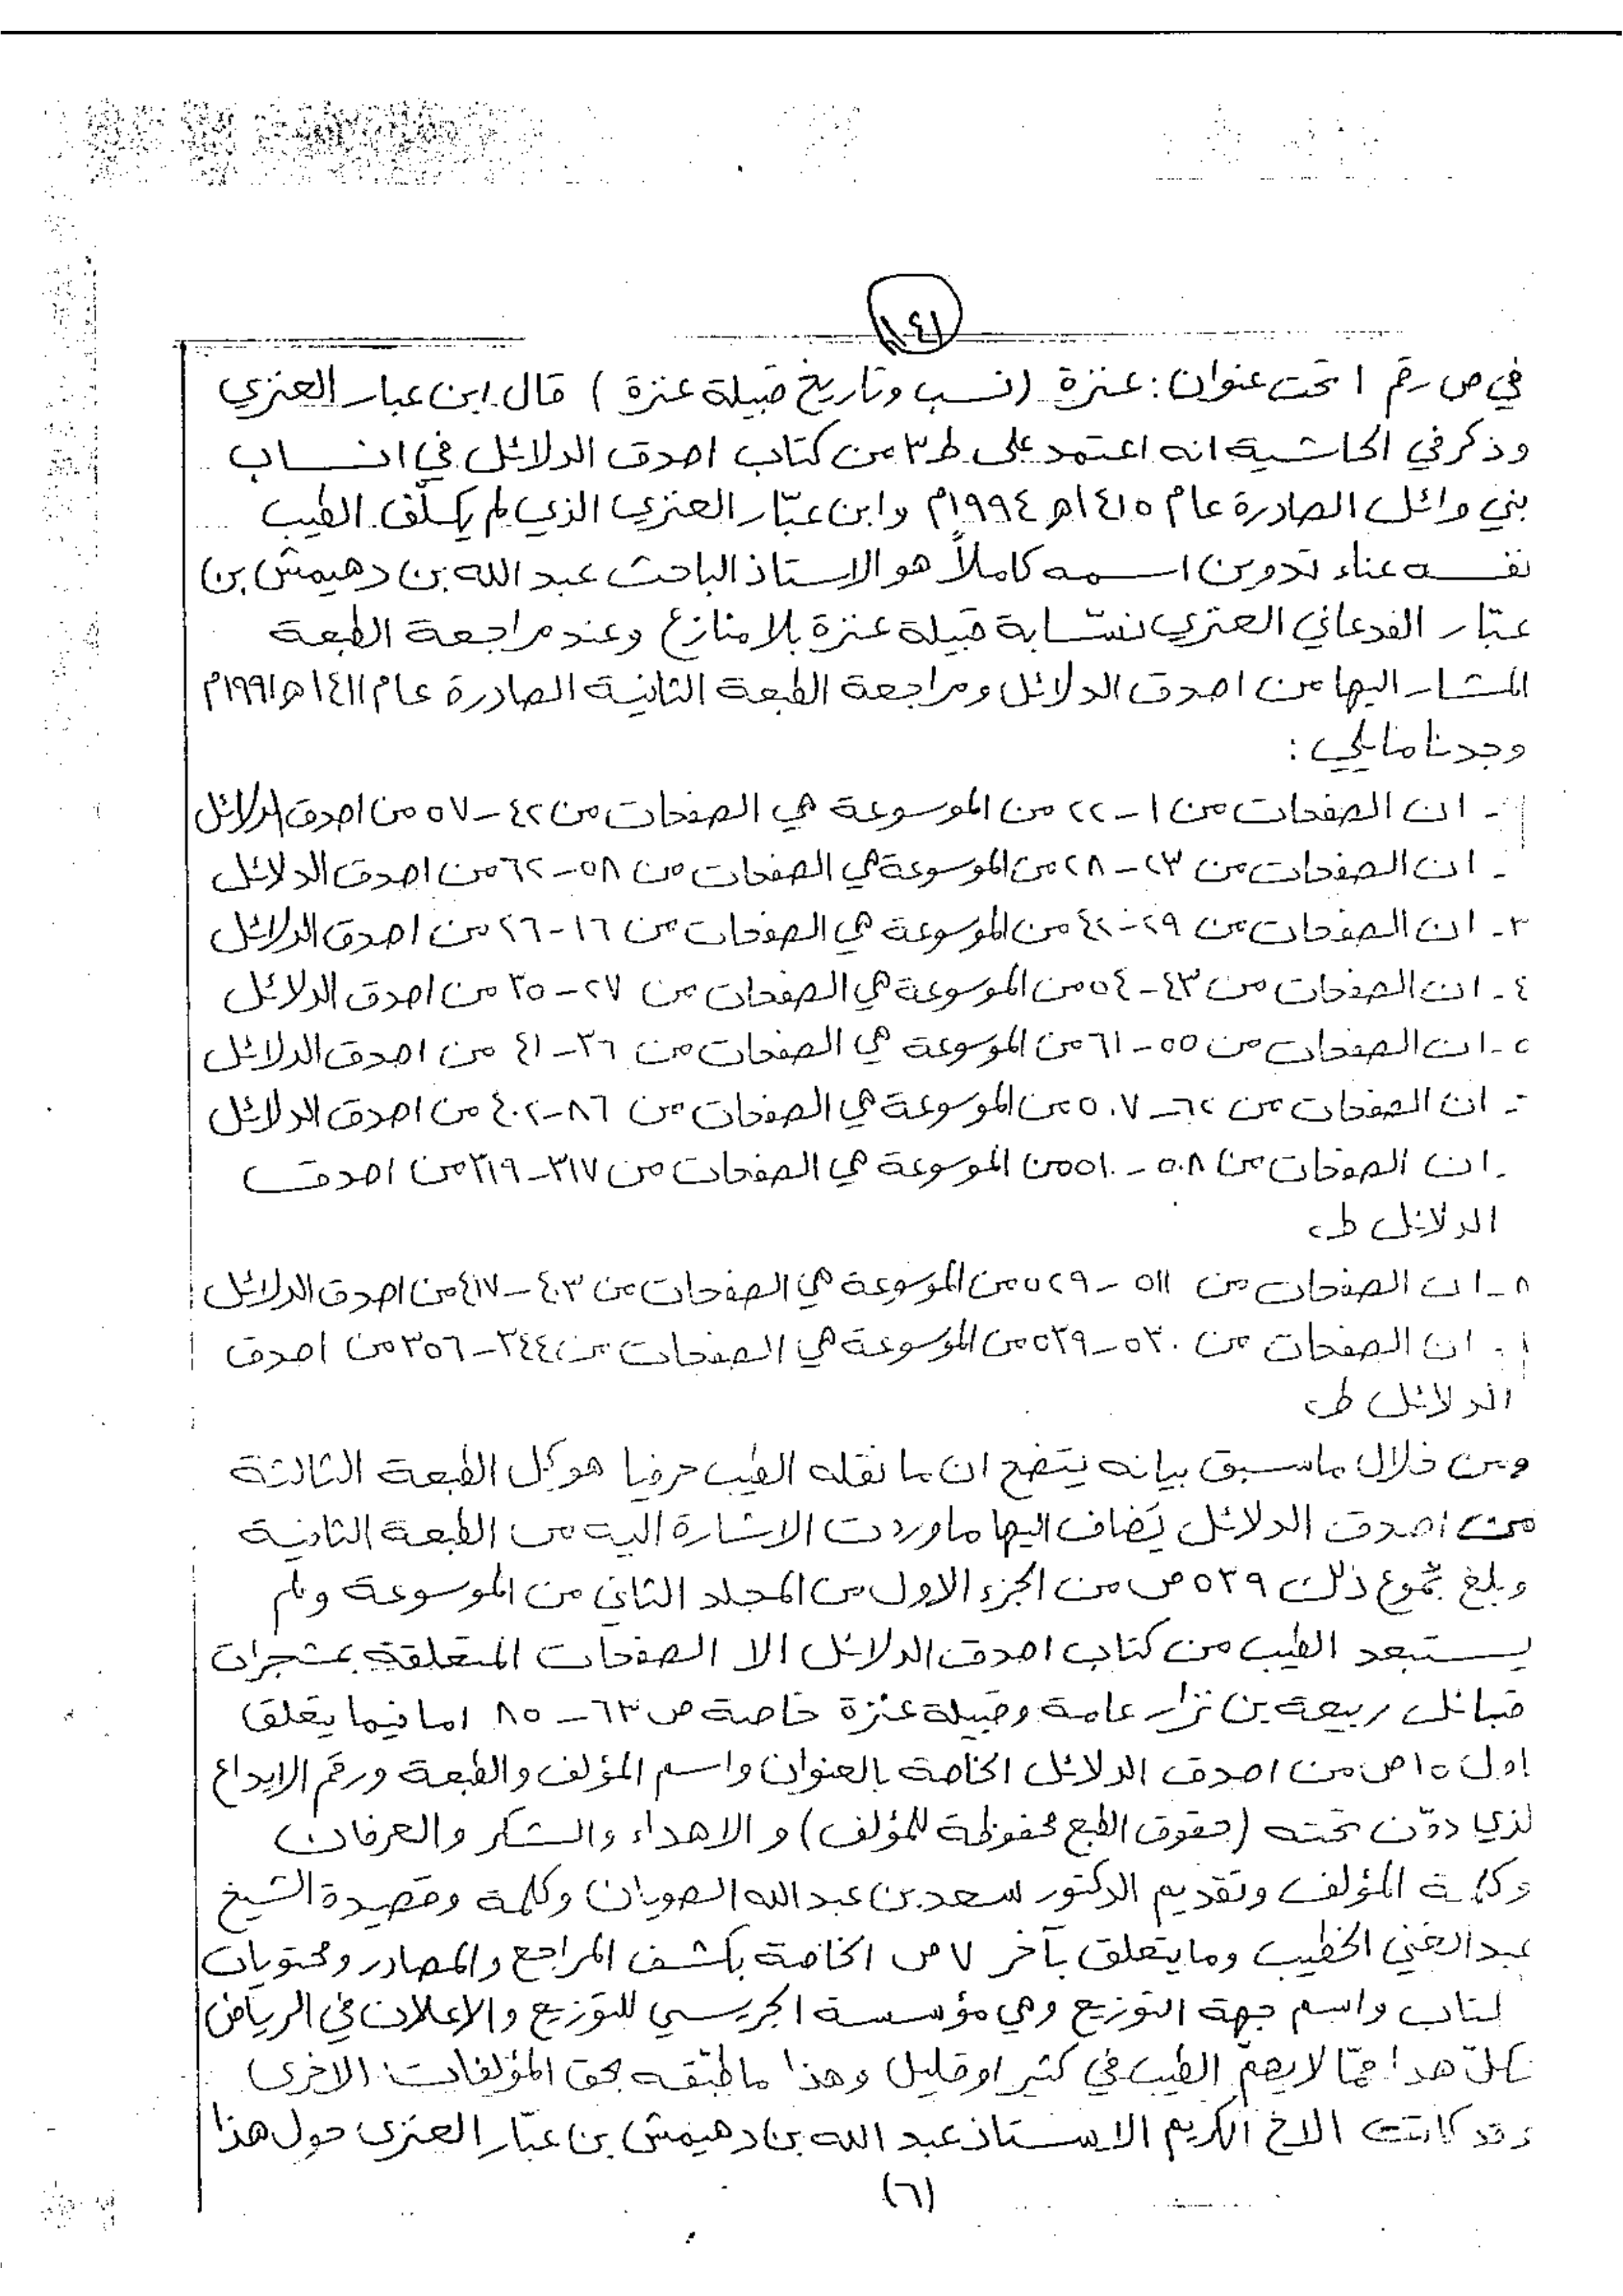 ١٤١
في ص رقم ١ تحت عنوان : عنزة (نسب وتاريخ قبيلة عنزة ) قال ابن عبار العنزي
وذكر في الحاشية انه اعتمد على ط٣ من كتاب اصدق الدلائل في انساب
بني وائل الصادرة عام ١٤١٥هـ ١٩٩٤م وابن عبّار العنزي الذي لم يكلّف الطيب
نفسه عناء تدوين اسمه كاملاً هو الاستاذ الباحث عبد الله بن دهيمش بن
عبّار الفدعاني العنزي نسّابة قبيلة عنزة بلا منازع وعند مراجعة الطبعة
المشار اليها من اصدق الدلائل ومراجعة الطبعة الثانية الصادرة عام ١٤١١هـ ١٩٩١م
وجدنا مايلي :
- ان الصفحات من ١ - ٢٢ من الموسوعة هي الصفحات من ٤٢ - ٥٧ من اصدق الدلائل
- ان الصفحات من ٢٣ - ٢٨ من الموسوعة هي الصفحات من ٥٨ - ٦٢ من اصدق الدلائل
٣- ان الصفحات من ٢٩ - ٤٢ من الموسوعة هي الصفحات من ١٦ - ٢٦ من اصدق الدلائل
٤- ان الصفحات من ٤٣ - ٥٤ من الموسوعة هي الصفحات من ٢٧ - ٣٥ من اصدق الدلائل
٥- ان الصفحات من ٥٥ - ٦١ من الموسوعة هي الصفحات من ٣٦ - ٤١ من اصدق الدلائل
- ان الصفحات من ٦٢ - ٥٠٧ من الموسوعة هي الصفحات من ٨٦ - ٤٠٢ من اصدق الدلائل
- ان الصفحات من ٥٠٨ - ٥١٠ من الموسوعة هي الصفحات من ٣١٧ - ٣١٩ من اصدق
الدلائل ط٢
٨- ان الصفحات من ٥١١ - ٥٢٩ من الموسوعة هي الصفحات من ٤٠٣ - ٤١٧ من اصدق الدلائل
- ان الصفحات من ٥٣٠ - ٥٣٩ من الموسوعة هي الصفحات من ٣٤٤ - ٣٥٦ من اصدق
الدلائل ط٢
ومن خلال ماسبق بيانه يتضح ان ما نقله الطيب حرفيا هو كل الطبعة الثالثة
من اصدق الدلائل يُضاف اليها ماوردت الاشارة اليه من الطبعة الثانية
وبلغ مجموع ذلك ٥٣٩ ص من الجزء الاول من المجلد الثاني من الموسوعة ولم
يستبعد الطيب من كتاب اصدق الدلائل الا الصفحات المتعلقة بمشجرات
قبائل ربيعة بن نزار عامة وقبيلة عنزة خاصة ص ٦٣ - ٨٥ اما فيما يتعلق
اول ١٥ ص من اصدق الدلائل الخاصة بالعنوان واسم المؤلف والطبعة ورقم الايداع
لذي دوّن تحته (حقوق الطبع محفوظة للمؤلف) والاهداء والشكر والعرفان
وكلمة المؤلف وتقديم الدكتور سعد بن عبد الله الصويان وكلمة وقصيدة الشيخ
عبد الغني الخطيب ومايتعلق بآخر ٧ ص الخاصة بكشف المراجع والمصادر ومحتويات
لتاب واسم جهة التوزيع وهي مؤسسة الجريسي للتوزيع والاعلان في الرياض
كلّ هذا ممّا لا يهمّ الطيب في كثير او قليل وهذا ماطبّقه بحق المؤلفات الاخرى
وقد كاتبت الاخ الكريم الاستاذ عبد الله بن دهيمش بن عبّار العنزي حول هذا
(٦)